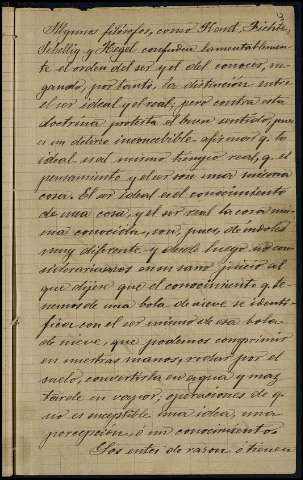 Algunos filósofos, como Kant, Fichte,
Schellig y Hegel confunden lamentablemen-
te el orden del ser y el del conocer, ne-
gando, por tanto, la distinción entre
el ser ideal y el real; pero contra esta
doctrina protesta el buen sentido, pues
es un delirio inconcebible afirmar q. lo
ideal es al mismo tiempo real, q. el
pensamiento y el ser son una misma
cosa. El ser ideal es el conocimiento
de una cosa, y el ser real la cosa mis-
ma conocida, son, pues, de índole
muy diferente y desde luego no con-
sideraríamos en su sano juicio al
que dijera que el conocimiento q. te-
nemos de una bola de nieve se identi-
fica con el ser mismo de esa bola
de nieve, que podemos comprimir
en nuestras manos, rodar por el
suelo, convertirla en agua y mas
tarde en vapor, operaciones de q.
no es suceptible una idea, una
percepción, ó un conocimiento.
Los entes de razon ó tienen